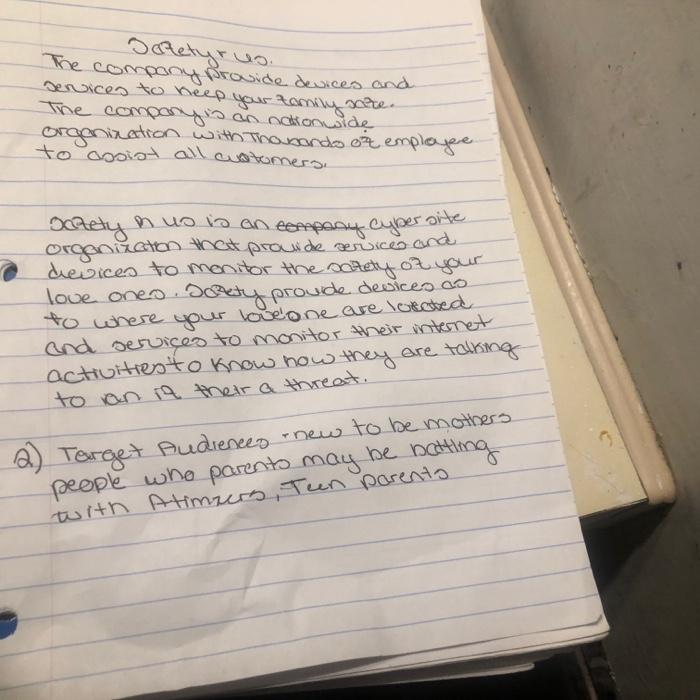 Safety r us.
The company provide devices and
services to keep your family safe.
The company is an nationwide
organization with Thousands of employee
to assist all customers.
Safety n us is an company cyber site
organization that provide services and
devices to monitor the safety of your
love ones. Safety provide devices as
to where your love one are located
and services to monitor their internet
activities to know how they are talking
to an if their a threat.
2) Target Audiences - new to be mothers
people who parents may be battling
with Atimzers, Teen parents